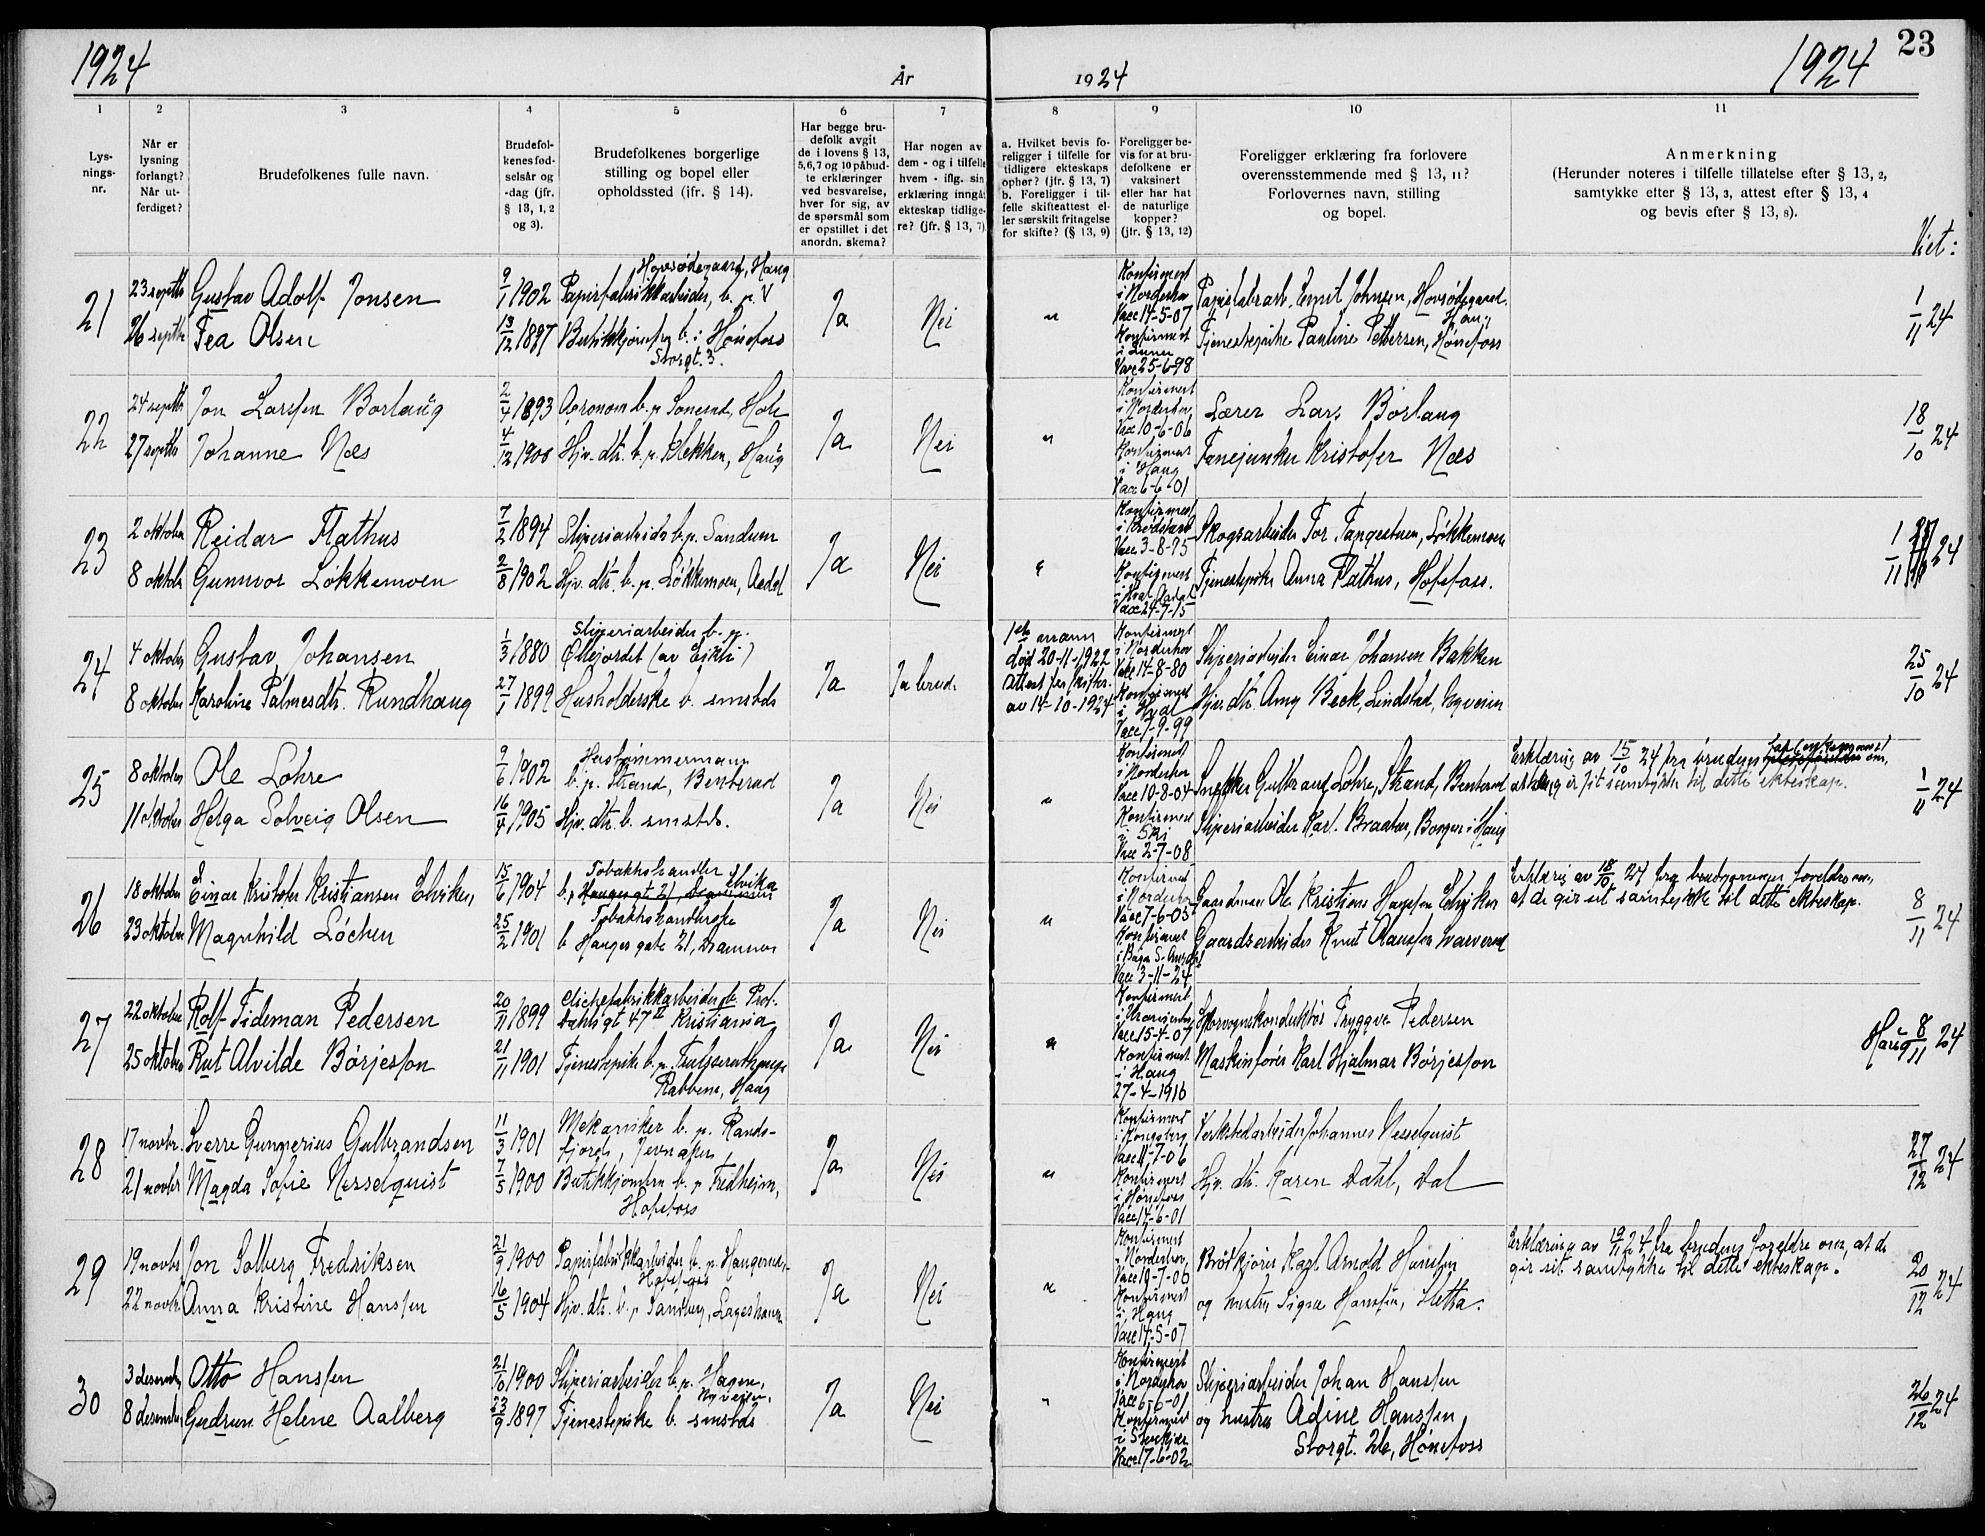 1924
År
1924
1924
23
1
2
3
4
5
6
7
8
9
10
11
Lys-
nings-
nr.
Når er
lysning
forlangt?
Når ut-
ferdiget?
Brudefolkenes fulle navn.
Brudefol-
kenes fød-
selsår og
-dag (jfr.
§ 13, 1, 2
og 3).
Brudefolkenes borgerlige
stilling og bopel eller
opholdssted (jfr. § 14).
Har begge bru-
defolk avgit
de i lovens § 13,
5,6,7 og 10 påbud-
te erklæringer
ved besvarelse,
hver for sig, av
de spørsmål som
er opstillet i det
anordn. skema?
Har nogen av
dem - og i tilfelle
hvem - iflg. sin
erklæring inngåt
ekteskap tidlige-
re? (jfr. § 13, 7)
a. Hvilket bevis fo-
religger i tilfelle for
tidligere ekteskaps
ophør? (jfr. § 13, 7)
b. Foreligger i til-
felle skifteattest el-
ler særskilt fritagelse
for skifte? (§ 13, 9)
Foreligger be-
vis for at bru-
defolkene er
vaksinert
eller har hat
de naturlige
kopper?
(jfr. § 13, 12)
Foreligger erklæring fra forlovere
overensstemmende med § 13, 11?
Forlovernes navn, stilling
og bopel.
Anmerkning
(Herunder noteres i tilfelle tillatelse efter § 13, 2,
samtykke efter § 13, 3, attest efter § 13, 4
og bevis efter § 13, 8).
Viet:
21
23 septbr
26 septbr
Gustav Adolf Jonsen
Fea Olsen
9/1 1902
13/12 1897
Hovsødegaard, Haug
Papirfabrikkarbeider, b. p.
Butikkjomfru b. i Hönefoss
Storgt. 3.
Ja
Nei
"
Konfirmert
i Norderhov
Vacc 14-5-07
Konfirmert
i Lunner
Vacc 25-6-98
Papirfabrarb. Emil Johnsen, Hovsødegaard.
Haug
Tjenestepike Pauline Pettersen, Hönefoss
1/11 24
22
24 septbr
27 septbr
Jon Larssen Borlaug
Johanne Næs
2/4 1893
4/12 1900
Agronom b. p. Sonerud, Hole
Hjv. dtr. b. p. Klekken, Haug
Ja
Nei
"
Konfirmert
i Norderhov
Vac 10-6-06
Konfirmert
i Haug
Vacc 6-6-01
Lærer Lars Borlaug
Fanejunker Kristofer Næs
18/10 24
23
2 oktober
8 oktober
Reidar Flathus
Gunnvor Løkkemoen
7/2 1894
2/8 1902
Sliperiarbeider b. p. Sandum
Hjv. dtr. b. p. Løkkemoen, Aadal
Ja
Nei
"
Konfirmert
i Krødsherad
Vacc 3-8-95
Konfirmert
i Hval Aadal
Vacc 24-7-15
Skogsarbeider Tor Tangestuen, Løkkemoen
Tjenestepike Anna Flathus, Hofsfoss.
1/11 24
24
4 oktober
8 oktober
Gustav Johansen
Karoline Palmesdtr. Rundhaug
1/3 1880
27/1 1899
Sliperiarbeider b. p.
Ollejordet (av Eikli)
Husholderske b. smstds
Ja
Ja brud.
1ste mann
død 20-11-1922
Attest fra skifter.
av 14-10-1924
Konfirmert
i Norderhov
Vacc 14-8-80
Konfirmert
i Hval
Vacc 7-9-99
Sliperiarbeider Einar Johansen Bakken
Hjv. dtr. Amy Beck, Lindstad, Nyveien
25/10 24
25
8 oktober
11 oktober
Ole Lohre
Helga Solveig Olsen
9/6 1902
16/4 1905
Hustømmermann
b. p. Strand, Benterud
Hjv. dtr. b. smstds.
Ja
Nei
"
Konfirmert
i Norderhov
Vacc 10-8-04
Konfirmert
i Ski
Vacc 2-7-08
Snekker Gulbrand Lohre, Strand, Benterud
Sliperiarbeider Karl Braaten, Borgen i Haug
Erklæring av 15/10 24 fra brudens om,
at gir sit samtykke til dette ekteskap.
1/11 24
26
18 oktober
23 oktober
Einar Kristofer Kristiansen Elviken
Magnhild Løchen
15/6 1904
25/2 1901
Tobakkshandler
b. p. Haugesgt 21, Drammen Elvika
Tobakkshandlerske
b. Hauges gate 21, Drammen
Ja
Nei
"
Konfirmert
i Norderhov
Vacc 7-6-05
Konfirmert
i Bagn S. Aurdal
Vacc 3-11-24
Gaardmann Ole Kristian Hanssen Elviken
Gaardsarbeider Knut Olaussen
Erklæring av 18/10 24 fra brudgommens foreldre om,
at de gir sit samtykke til dette ekteskap.
8/11 24
27
22 oktober
25 oktober
Rolf Tideman Pedersen
Rut Alvilde Börjesson
20/11 1899
21/11 1901
Clichefabrikkarbeider b. Prof.
Dahlsgt 47 II Kristiania
Tjenestepike b. p.
Rabbene, Haug
Ja
Nei
"
Konfirmert
Vacc 15-4-07
Konfirmert
i Haug
27-4-1916
Sporvognskonduktör Tryggve Pedersen
Maskinfører Karl Hjalmar Börjesson
Haug 8/11 24
28
17 novbr.
21 novbr
Sverre Gunnerius Gulbrandsen
Magda Sofie Nesselquist
11/3 1901
7/5 1900
Mekaniker b. p. Rands-
fjord, Jevnaker
Butikkjomfru b. p. Fredheim,
Hofsfoss
Ja
Nei
"
Konfirmert
i Kongsberg
Vacc 11-7-06
Konfirmert
i Hönefoss
Vacc 14-6-01
Verkstedarbeider Johannes Nesselquist
Hjv. dtr. Karen Dahl, Dal
27/12 24
29
19 novbr
22 novbr.
Jon Solberg Fredriksen
Anna Kristine Hanssen
21/9 1900
16/5 1904
Papirfabrikkarbeider b. p. Haugerud,
Hofsfoss
Hjv. dtr. b. p. Sandberg,
Ja
Nei
"
Konfirmert
i Norderhov
Vacc 19-7-06
Konfirmert
i Haug
Vacc 14-5-07
Brödkjörer Karl Arnold Hanssen
og hustru Signe Hanssen, Sletta.
Erklæring av 19/11 24 fra brudens foreldre om, at de
gir sit samtykke til dette ekteskap.
20/12 24
30
3 desember
8 desember
Otto Hanssen
Gudrun Helene Aalberg
21/10 1900
23/9 1897
Sliperiarbeider b. p. Hagen,
Nyveien.
Tjenestepike b. smstds
Ja
Nei
"
Konfirmert
i Norderhov
Vacc 6-6-01
Konfirmert
i Steinkjær
Vacc 17-6-02
Sliperiarbeider Johan Hanssen
og hustru Adine Hanssen
Storgt. 26, Hönefoss
26/12 24